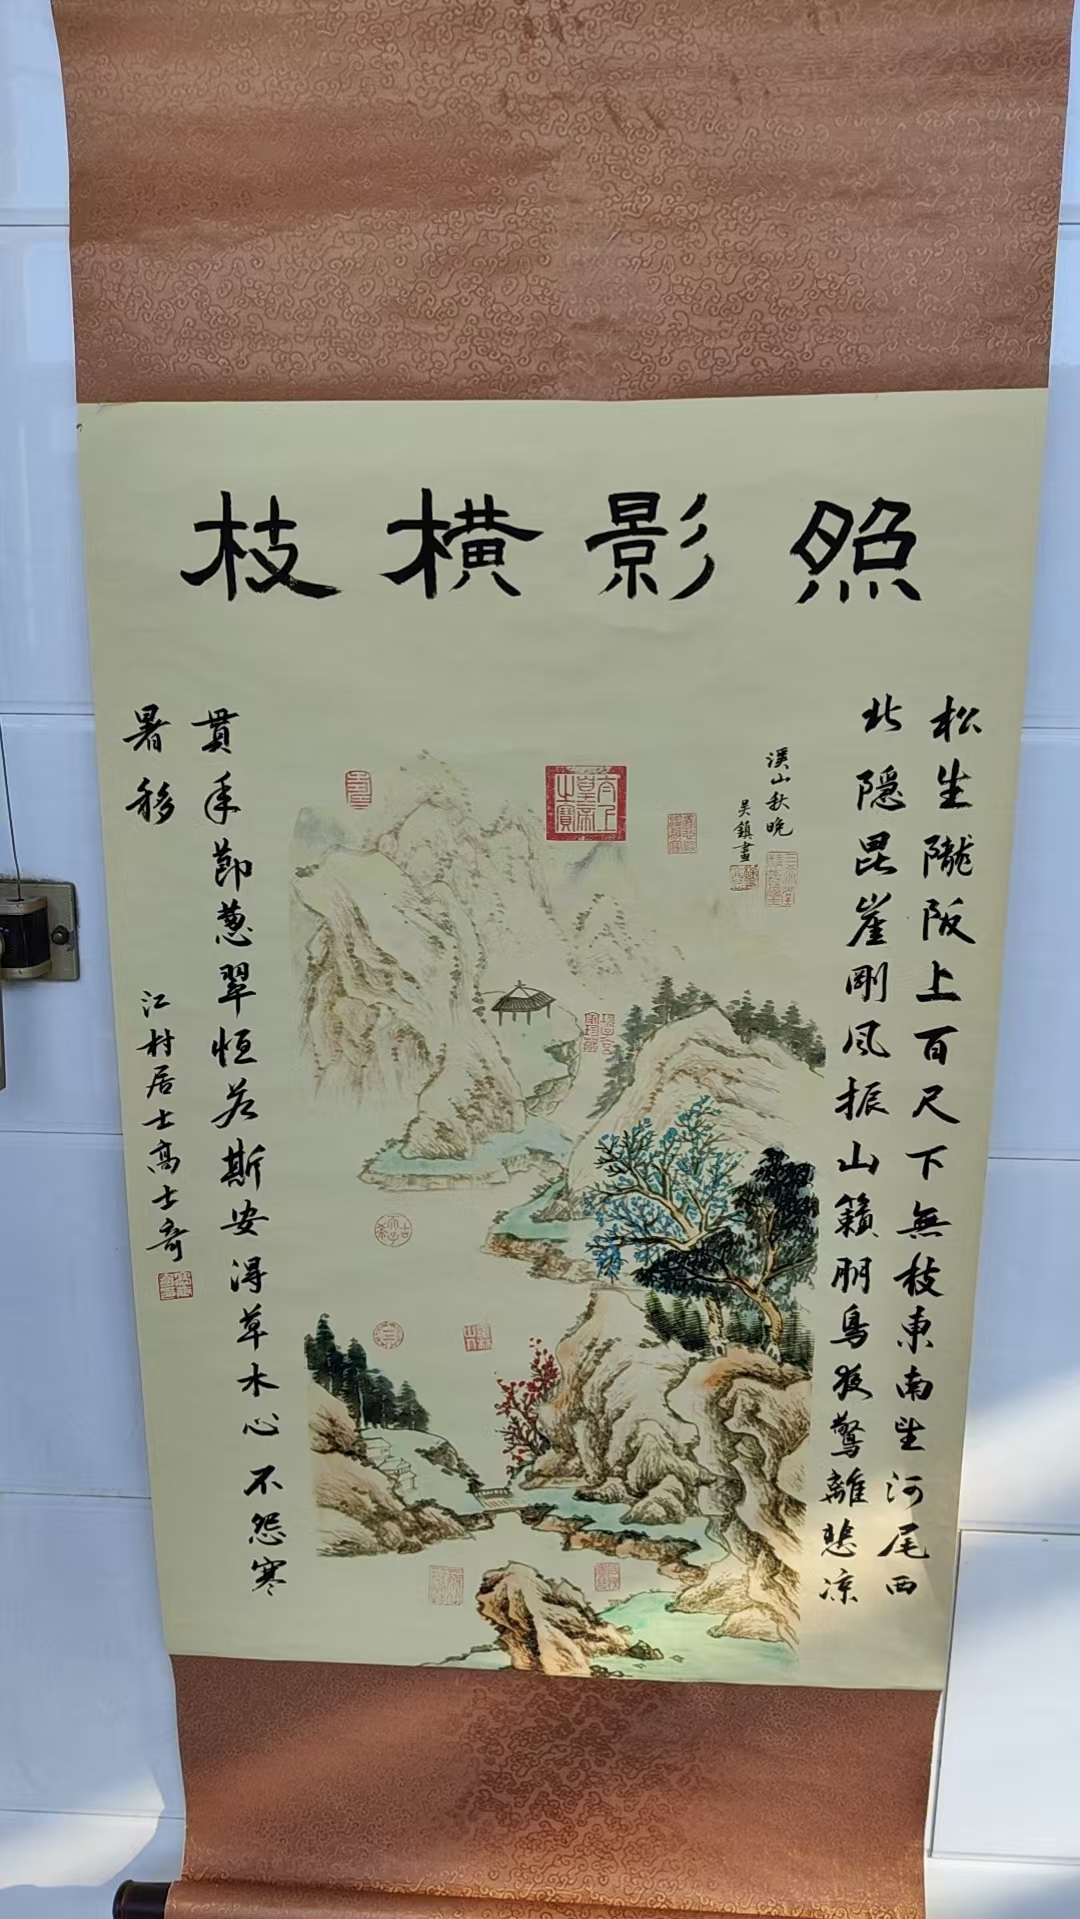 照影橫枝
松生隴阪上百尺下無枝東南望河尾西
北隱昆崖剛風振山籟朋鳥夜驚離悲涼
貫年節蔥翠恒若斯安得草木心不怨寒
暑移
江村居士高士奇
溪山秋晚
吳鎮畫
太上皇帝之寶